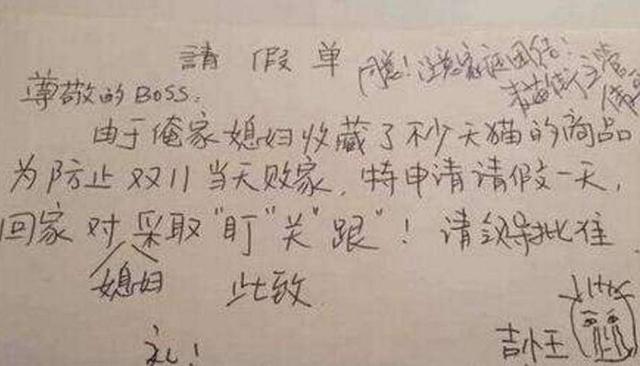 請假单
同意！注意家庭团结！
尊敬的BOSS：
由于俺家媳妇收藏了秒天猫的商品
为防止双11当天败家，特申请请假一天，
回家对媳妇采取"盯""关""跟"！请领导批准
此致
礼！